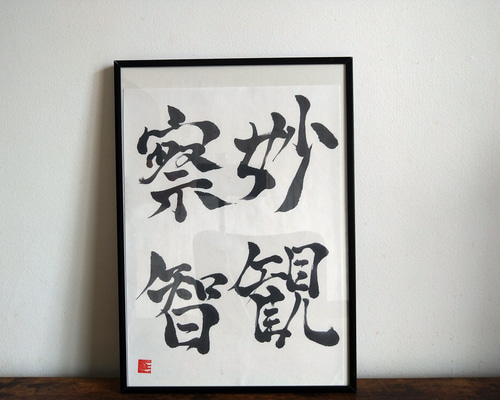 妙観
察智